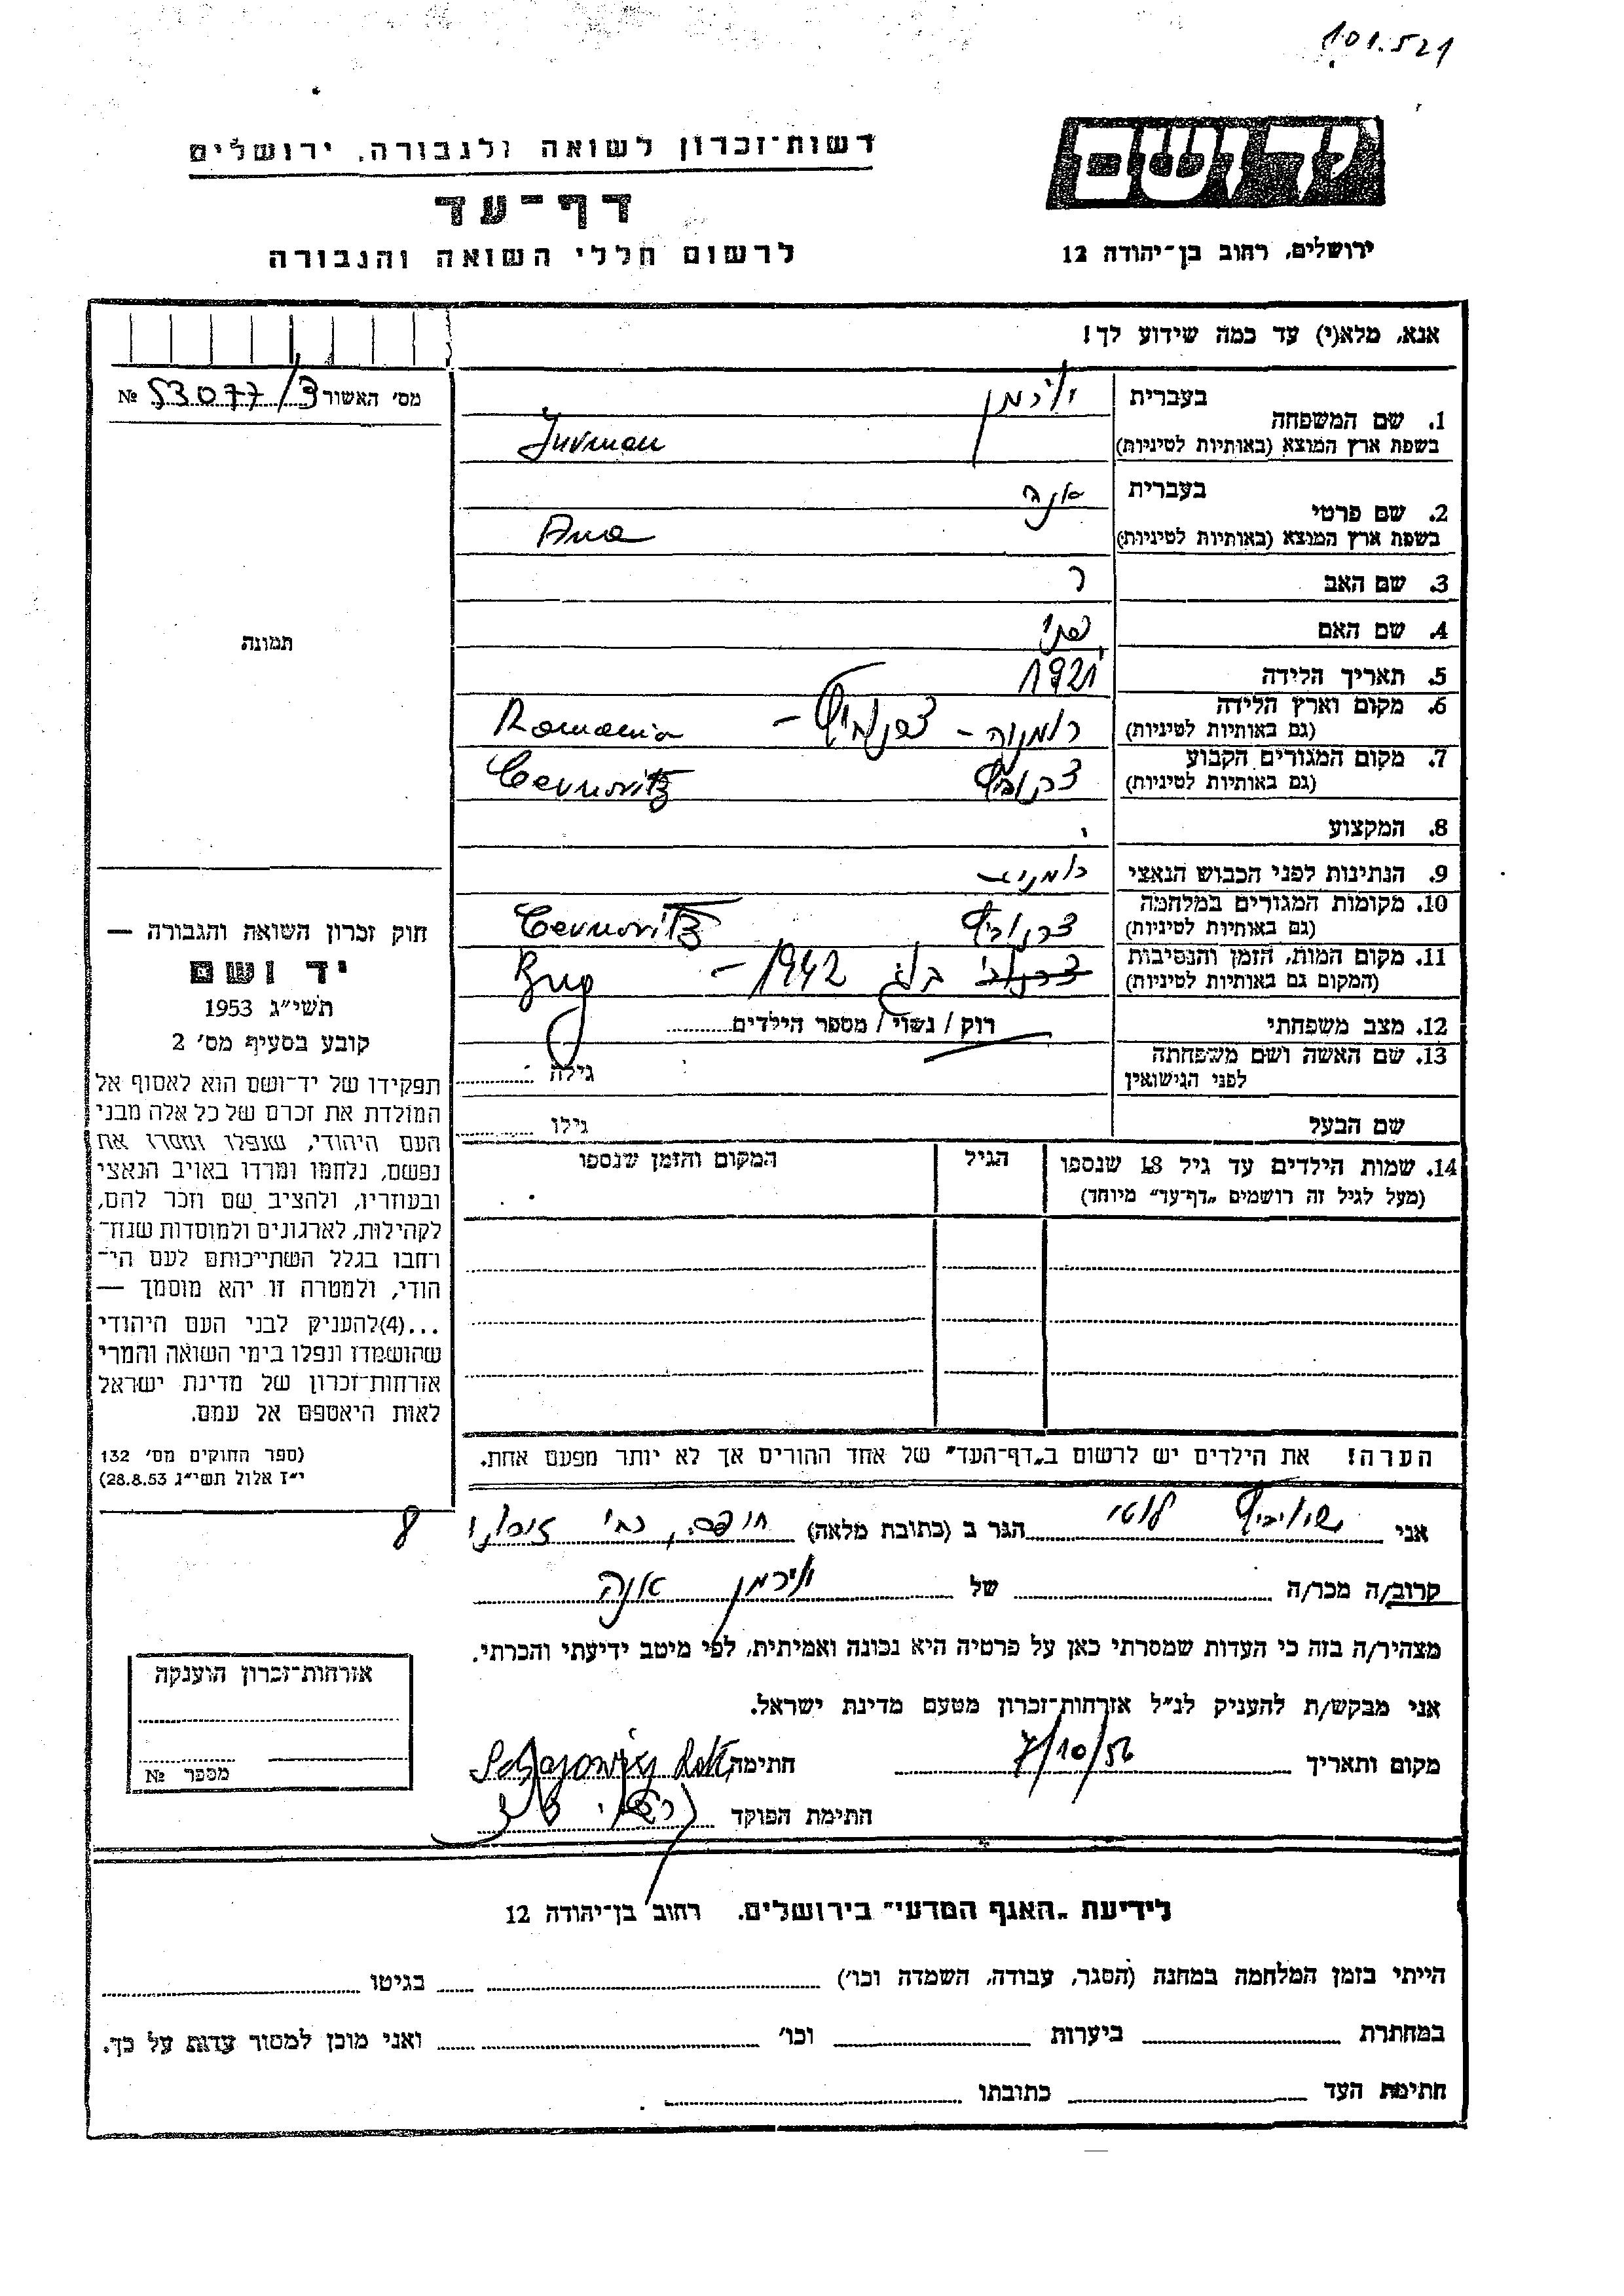 101.521
יד ושם
רשות־זכרון לשואה ולגבורה, ירושלים
דף־עד
לרשום חללי השואה והגבורה
ירושלים, רחוב בן־יהודה 12
אנא, מלא(י) עד כמה שידוע לך!
מס׳ האשור 53077/3 №
תמונה
1. שם המשפחה
בעברית
בשפת ארץ המוצא (באותיות לטיניות)
2. שם פרטי
בעברית אנה
בשפת ארץ המוצא (באותיות לטיניות) Ana
3. שם האב
4. שם האם
5. תאריך הלידה 1921
6. מקום וארץ הלידה
(גם באותיות לטיניות) רומניה – – Romania
7. מקום המגורים הקבוע
(גם באותיות לטיניות) Cernovitz
8. המקצוע
9. הנתינות לפני הכבוש הנאצי
10. מקומות המגורים במלחמה
(גם באותיות לטיניות) Cernovitz
11. מקום המות, הזמן והנסיבות
(המקום גם באותיות לטיניות) בוג 1942 – Bug
12. מצב משפחתי רוק / נשוי / מספר הילדים
13. שם האשה ושם משפחתה
לפני הנישואין גילה
שם הבעל גילו
14. שמות הילדים עד גיל 18 שנספו
(מעל לגיל זה רושמים „דף־עד״ מיוחד)
הגיל
המקום והזמן שנספו
הערה! את הילדים יש לרשום ב„דף־העד״ של אחד ההורים אך לא יותר מפעם אחת.
חוק זכרון השואה והגבורה —
יד ושם
תשי״ג 1953
קובע בסעיף מס׳ 2
תפקידו של יד־ושם הוא לאסוף אל
המולדת את זכרם של כל אלה מבני
העם היהודי, שנפלו ומסרו את
נפשם, נלחמו ומרדו באויב הנאצי
ובעוזריו, ולהציב שם וזכר להם,
לקהילות, לארגונים ולמוסדות שנח־
רחבו בגלל השתייכותם לעם הי־
הודי, ולמטרה זו יהא מוסמך —
...(4)להעניק לבני העם היהודי
שהושמדו ונפלו בימי השואה והמרי
אזרחות־זכרון של מדינת ישראל
לאות היאספם אל עמם.
(ספר החוקים מס׳ 132
י״ז אלול תשי״ג 28.8.53)
אני לוטי הגר ב (כתובת מלאה) 8
קרוב/ה מכר/ה של אנה
מצהיר/ה בזה כי העדות שמסרתי כאן על פרטיה היא נכונה ואמיתית, לפי מיטב ידיעתי והכרתי.
אני מבקש/ת להעניק לנ״ל אזרחות־זכרון מטעם מדינת ישראל.
מקום ותאריך 7/10/56 חתימה
חתימת הפוקד
אזרחות־זכרון הוענקה
מספר №
לידיעת „האגף המדעי״ בירושלים. רחוב בן־יהודה 12
הייתי בזמן המלחמה במחנה (הסגר, עבודה, השמדה וכו׳) בגיטו
במחתרת ביערות וכו׳ ואני מוכן למסור עדות על כך.
חתימת העד כתובתו